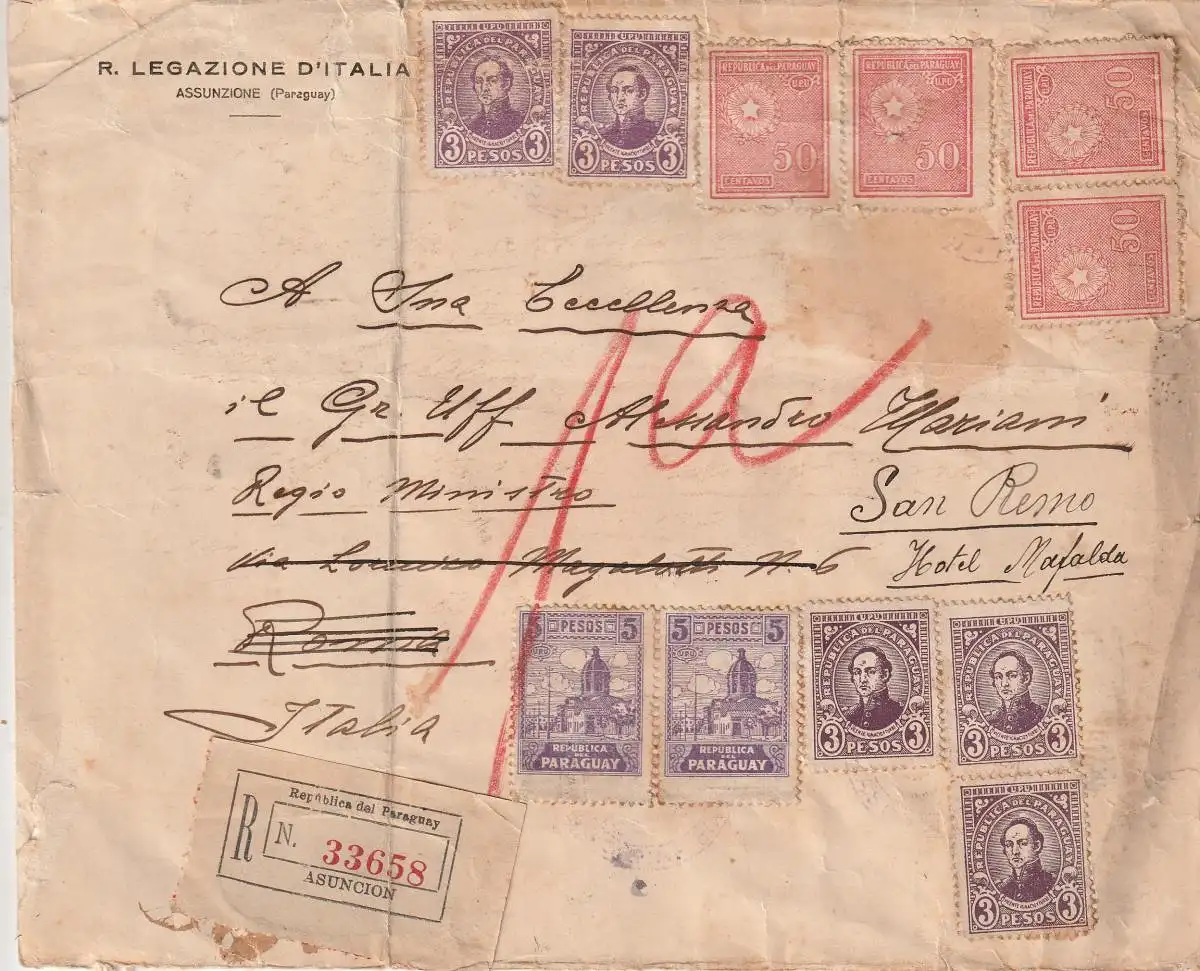 R. LEGAZIONE D'ITALIA
ASSUNZIONE (Paraguay)
UPU
REPUBLICA DEL PARAGUAY
3 PESOS 3
UPU
REPUBLICA DEL PARAGUAY
3 PESOS 3
REPUBLICA DEL PARAGUAY
U.P.U
50
CENTAVOS
REPUBLICA DEL PARAGUAY
U.P.U
50
CENTAVOS
REPUBLICA DEL PARAGUAY
U.P.U
50
CENTAVOS
REPUBLICA DEL PARAGUAY
U.P.U
50
CENTAVOS
A Sua Eccellenza
il Gr. Uff Alessandro Mariani
Regio Ministro
San Remo
Via Lorenzo Magalotti N. 6
Hotel Mafalda
Roma
Italia
5 PESOS 5
UPU
REPUBLICA
DEL
PARAGUAY
5 PESOS 5
UPU
REPUBLICA
DEL
PARAGUAY
UPU
REPUBLICA DEL PARAGUAY
VICENTE IGNACIO YTURBE
3 PESOS 3
UPU
REPUBLICA DEL PARAGUAY
VICENTE IGNACIO YTURBE
3 PESOS 3
UPU
REPUBLICA DEL PARAGUAY
VICENTE IGNACIO YTURBE
3 PESOS 3
República del Paraguay
R N. 33658
ASUNCION